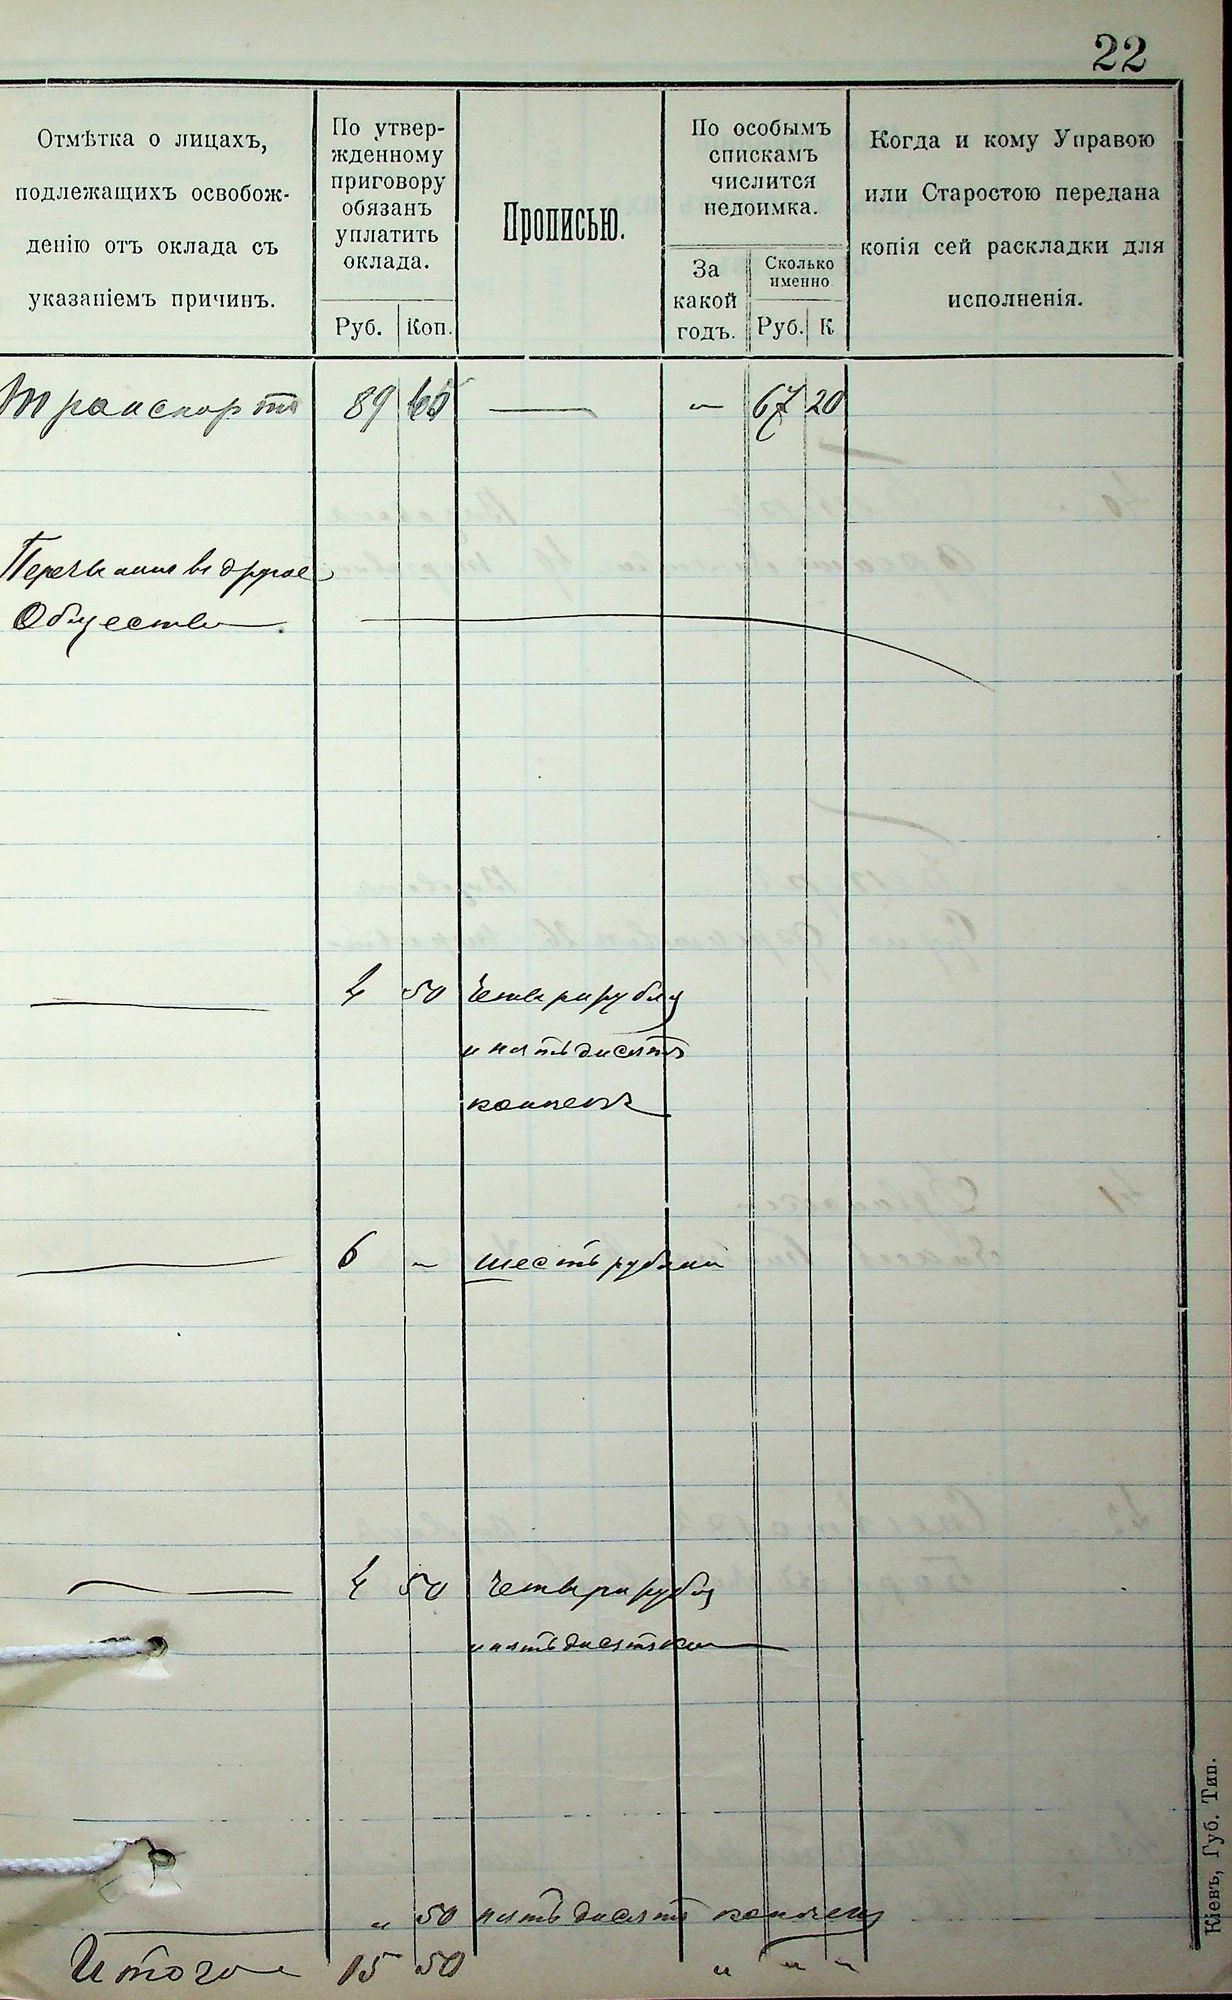 22
Отмѣтка о лицахъ,
подлежащихъ освобож-
денію отъ оклада съ
указаніемъ причинъ.
По утвер-
жденному
приговору
обязанъ
уплатить
оклада.
Руб. Коп.
Прописью.
По особымъ
спискамъ
числится
недоимка.
За
какой
годъ.
Сколько
именно
Руб. К
Когда и кому Управою
или Старостою передана
копія сей раскладки для
исполненія.
Транспортъ 89 — „ 67 20
въ другое
Общество.
4 50 Четыре рубля
и пятьдесятъ
копѣекъ
6 „ шесть рублей
4 50 Четыре рубля
и пятьдесятъ коп
„ 50 пятьдесятъ копѣекъ
Итого 15 50 „ „ „
Кіевъ, Губ. Тип.